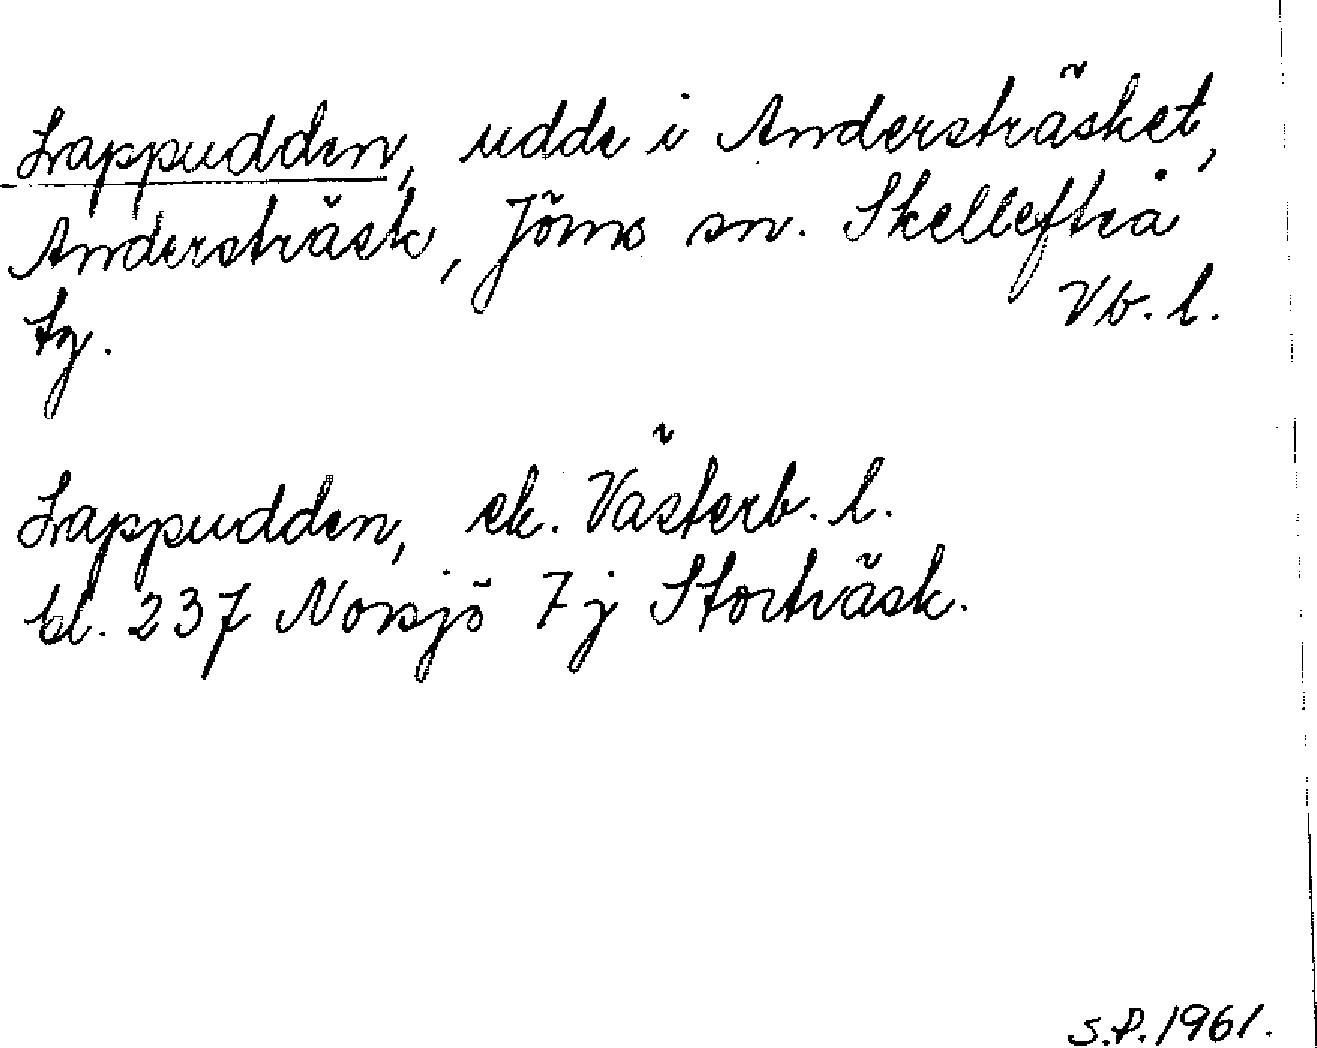 Lappudden, udde i Andersträsket,
Andersträsk, Jörns sn. Skellefteå
tg. Vb. l.
Lappudden, ek. Västerb. l.
bl. 237 Norsjö 7j Storträsk.
S.P. 1961.